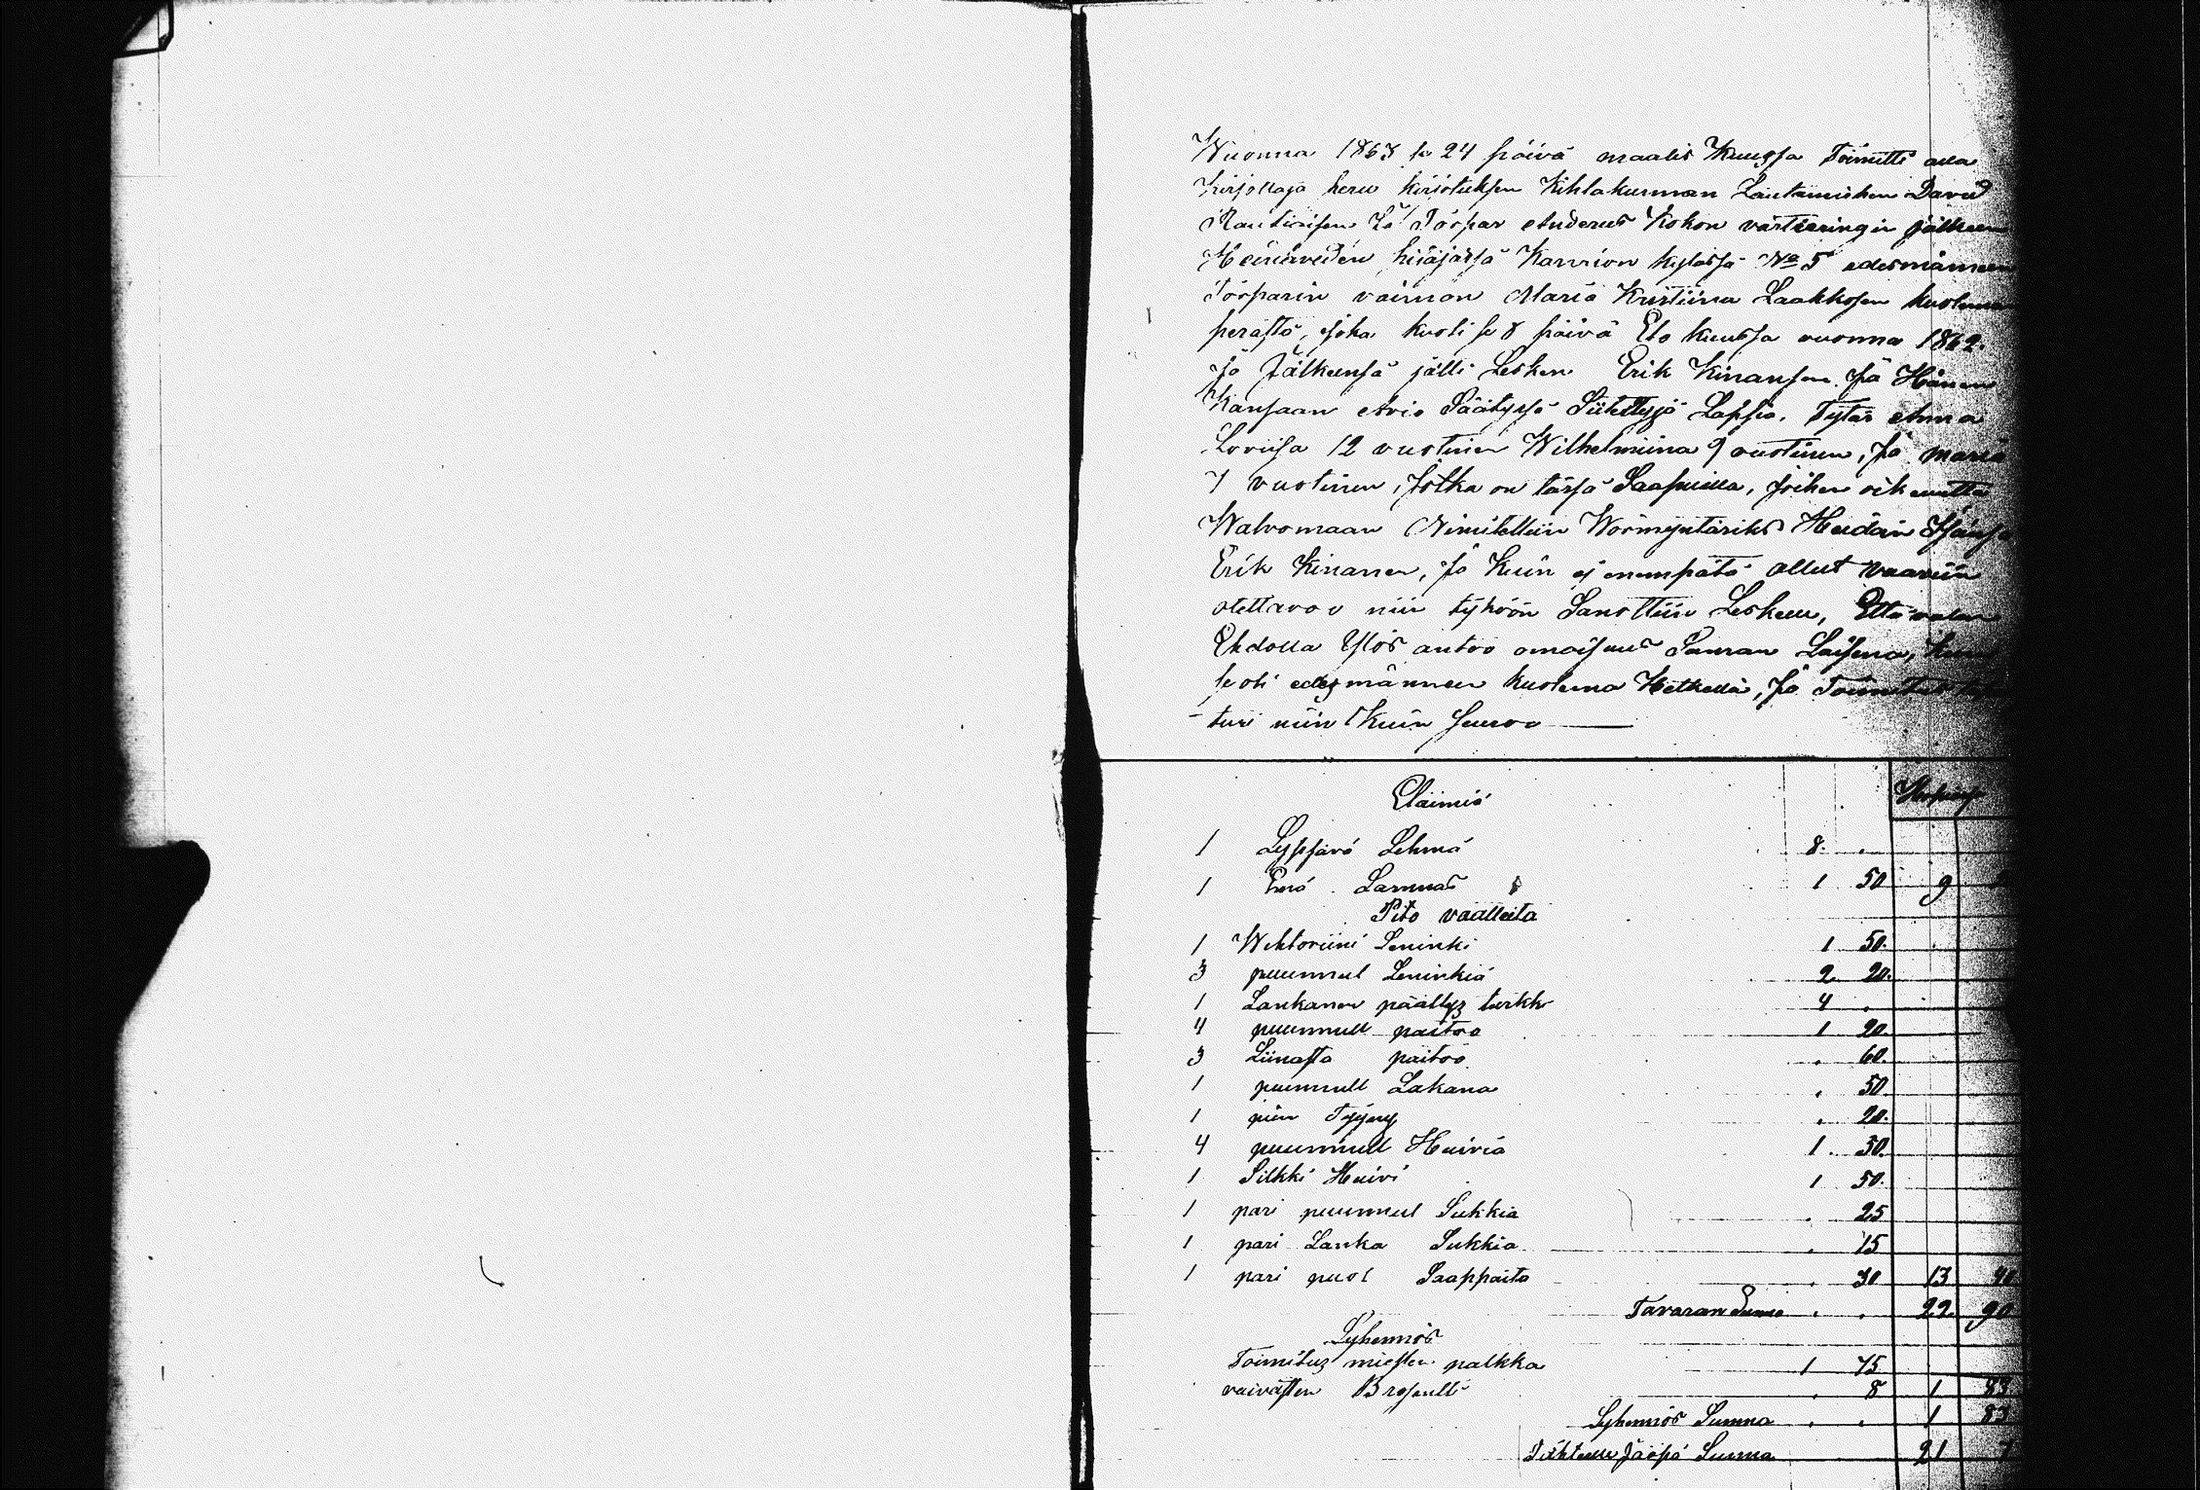 Wuonna 1863 se 24 päivä maalis Kuussa Toimitti alla
kirjottaja peru kirjotuksen Kihlakunnan Lautamiehen David
Rautiaisen Ja Torpar Anderus Kokon värtieringin jälkeen
Heinäveden pitäjässä Karvion kylässä No 5 edesmänneen
Torparin vaimon Maria Kristiina Laakkosen kuoleman
perästä, joka kuoli se 8 päivä Elo kuussa vuonna 1862.
Ja Jälkeensä jätti Lesken Erik Kinansen Ja Hänen
Kansaan Avio Säätyssä Siitettyjä Lapsia. Tytär Anna
Loviisa 12 vuotinen Wilhelmiina 9 vuotinen, Ja Maria
7 vuotinen, Jotka on tässä Saapuilla, joihen oikeutta
Walvomaan Nimitettiin Woormyntäriks Heidän Isänsä
Erik Kinanen, Ja Kuin ej enempätä ollut vaariin
otettavoo niin työhön Sanottiin Leskelle, Että valan
Ehdolla Ylös antoo omaisuus Saman Laisena, kuin
se oli edesmänneen kuolema Hetkellä, Ja Toimitus
turi niin Kuin seuroo
Eläimiä
1 Lypsävä Lehmä 8. .
1 Emä Lammas 1 50 9
Pito vaatteita
1 Wehtoriini Leninki 1 50.
3 puumul Leninkiä 2 20.
1 Lankanen päällys turkki 4 .
4 puumull paitoo 1 20.
3 Liinasta paitoo . 60.
1 puumull Lakana . 50
1 pien Tyyny . 20.
4 puumull Huivia 1. 50.
1 Silkki Huivi 1 50.
1 pari puumul Sukkia . 25
1 pari Lanka Sukkia . 15
1 pari puol Saappaita . 30 13 40
Tavaran Summa . . 22. 90
Lyhennös
Toimitus miesten palkka 1 75
vaivasten Brosentti . 8 1 83
Lyhennös Summa . . 1 83
Tähteelle Jääpä Summa 21 7